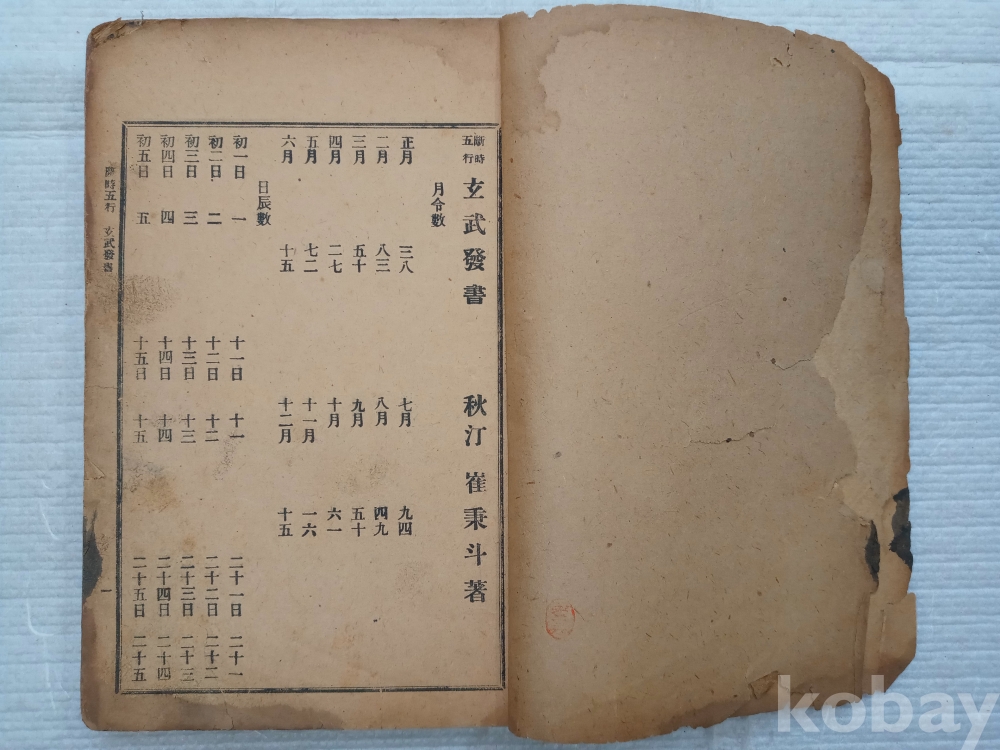 斷時五行 玄武發書 秋汀 崔秉斗著
月令數
正月 三八 七月 九四
二月 八三 八月 四九
三月 五十 九月 五十
四月 二七 十月 六一
五月 七二 十一月 一六
六月 十五 十二月 十五
日辰數
初一日 一 十一日 十一 二十一日 二十一
初二日 二 十二日 十二 二十二日 二十二
初三日 三 十三日 十三 二十三日 二十三
初四日 四 十四日 十四 二十四日 二十四
初五日 五 十五日 十五 二十五日 二十五
斷時五行 玄武發書 一
kobay